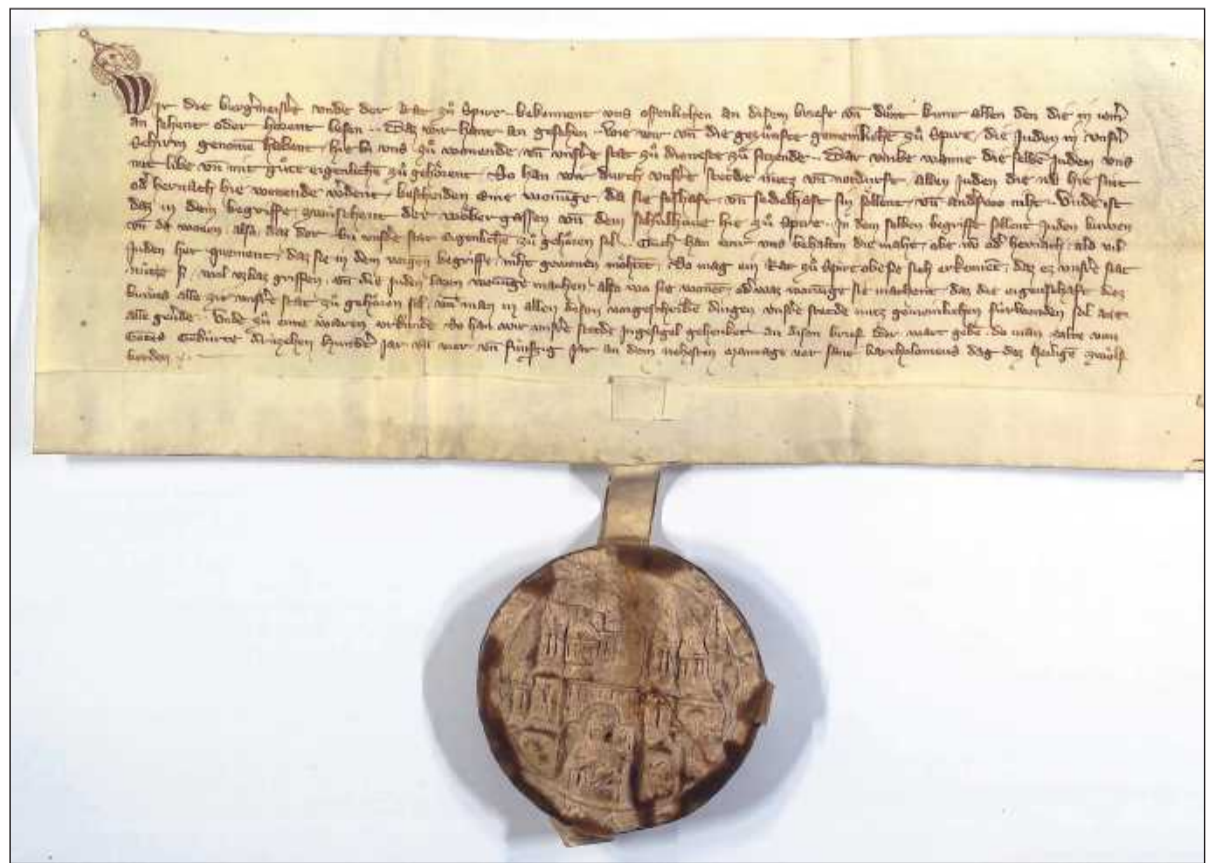 Wir die burg̾meist̾e vnde der Rat zů Spire bekennent vns offenlichen an disem briefe vn̄ důnt kunt allen den die in iem̄
an sehent oder hörent lesen . Daz wir hant an gesehen . wie wir vn̄ die gezünfte gemeinliche zů Spire / die Juden in vnser̾
Schirm genom̄e habent / hie bi vns zů wonende / vn̄ vnser̾e stat zů dieneste zů sitzende . Dar vmbe wanne die selbe Juden vns
mit libe vn̄ mit gůte eigenliche zů gehörent / So han wir durch vnser̾e stede nutz vn̄ notdurft / allen Juden die nů hie sint
od̾ hernach hie wonende werdent / bescheiden eine wonūge / da sie seshaft / vn̄ sedelhaft sin sollent / vn̄ anderswo niht . Vnde ist
daz in dem begriffe / zwischent der Weber gassen vn̄ dem schůlhoue hie zů Spire / in dem selben begriffe sollent Juden buwen
vn̄ da wonen / also / daz der bu vnser̾e stat eigenliche zů gehören sol . Auch han wir vns behalten die maht / obe nů od̾ hernach / als vil
Juden her quement / daz sie in dem begriffe / niht gewonen möhtent / So mag ein Rat zů Spire obe sie sich erkennent / daz ez vnser̾e stat
nütze si / wol vzbaz griffen / vn̄ die Juden lazen wonūge machen / also wo sie wonent / od̾ waz wonūge sie machent / daz die eigenschaft dez
buwes alle zit vnser̾e stat zů gehören sol / vn̄ man in allen disen vorgeschriben dingen vnser̾e stede nutz gemeinlichen fürwenden sol ane
alle geuerde . Vnde zů eime waren vrkunde / So han wir vnser̾e stede Ingesigel gehenket an disen brief / der wart geben / da man zalte von
Gotes Gebürte drüzehen hundert jar vn̄ vier vn̄ fünfzig jar an dem nehesten mantage vor sanc Bartholomeus dag dez heilige zwölf
botten .